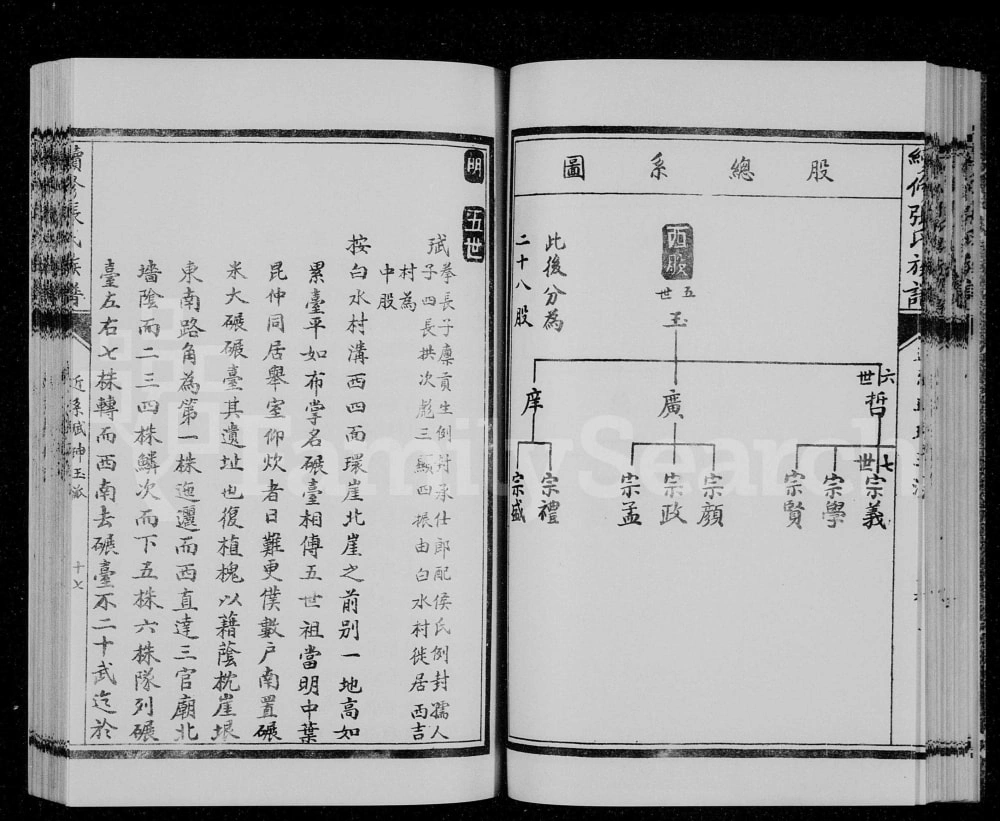 股總系圖
西股
五世
玉
六世
哲
廣
庠
七世
宗義
宗學
宗賢
宗顏
宗政
宗孟
宗禮
宗盛
此後分為
二十八股
明 五世
斌拳長子廩貢生例封承仕郎配侯氏例封孺人
子四長拱次彪三顯四振由白水村徙居西吉
村為
中股
按白水村溝西四面環崖北崖之前別一地高如
累臺平如布掌名碾臺相傳五世祖當明中葉
昆仲同居舉室仰炊者日難更僕數戶南置碾
米大碾碾臺其遺址也復植槐以籍蔭枕崖垠
東南路角為第一株迤邐而西直達三官廟北
墻陰而二三四株鱗次而下五株六株隊列碾
臺左右七株轉而西南去碾臺不二十武迄於
續修張氏族譜
近系斌珅玉派
十七
FamilySearch